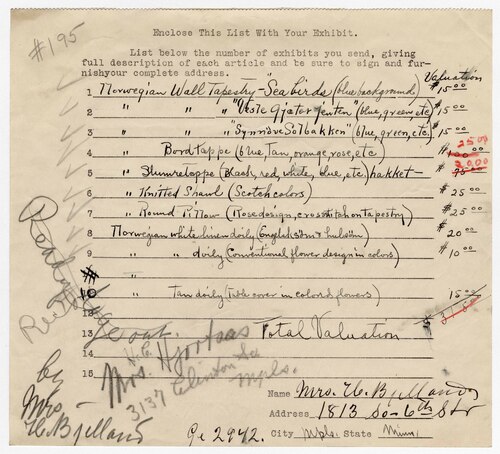 #195
Enclose This List With Your Exhibit.
List below the number of exhibits you send, giving
full description of each article and be sure to sign and fur-
nishyour complete address.
Valuation
1 Norwegian Wall Tapestry-"Sea birds (blue background) $15.00
2 " " " "Veste Gjæter Jenten" (blue, green, etc) $15.00
3 " " " "Synnöve Solbakken" (blue, green, etc.) $15.00
4 " Bordtæppe (blue, Tan, orange, rose, etc 25.00
5 " (Black, red, white, blue, etc.) hakket-
6 " Knitted Shawl (Scotch colors) $25.00
7 " Round Pillow (Rose design, cross stitch on tapestry) $25.00
8 Norwegian white linen doily (Engelsk söm & hulsöm) $20.00
9 " " doily (Conventional flower design in colors) $10.00
#10 " Tan doily (Table cover in colored flowers) 15.00
12
13 Total Valuation
14
15
out.
H.C.
Mrs. Hjortaas
3137 Clinton Ave
Mpls.
by
Mrs
H. Bjelland
Name Mrs. H. Bjelland
Address 1813 So-6th Str
Ge 2942. City Mpls. State Minn.